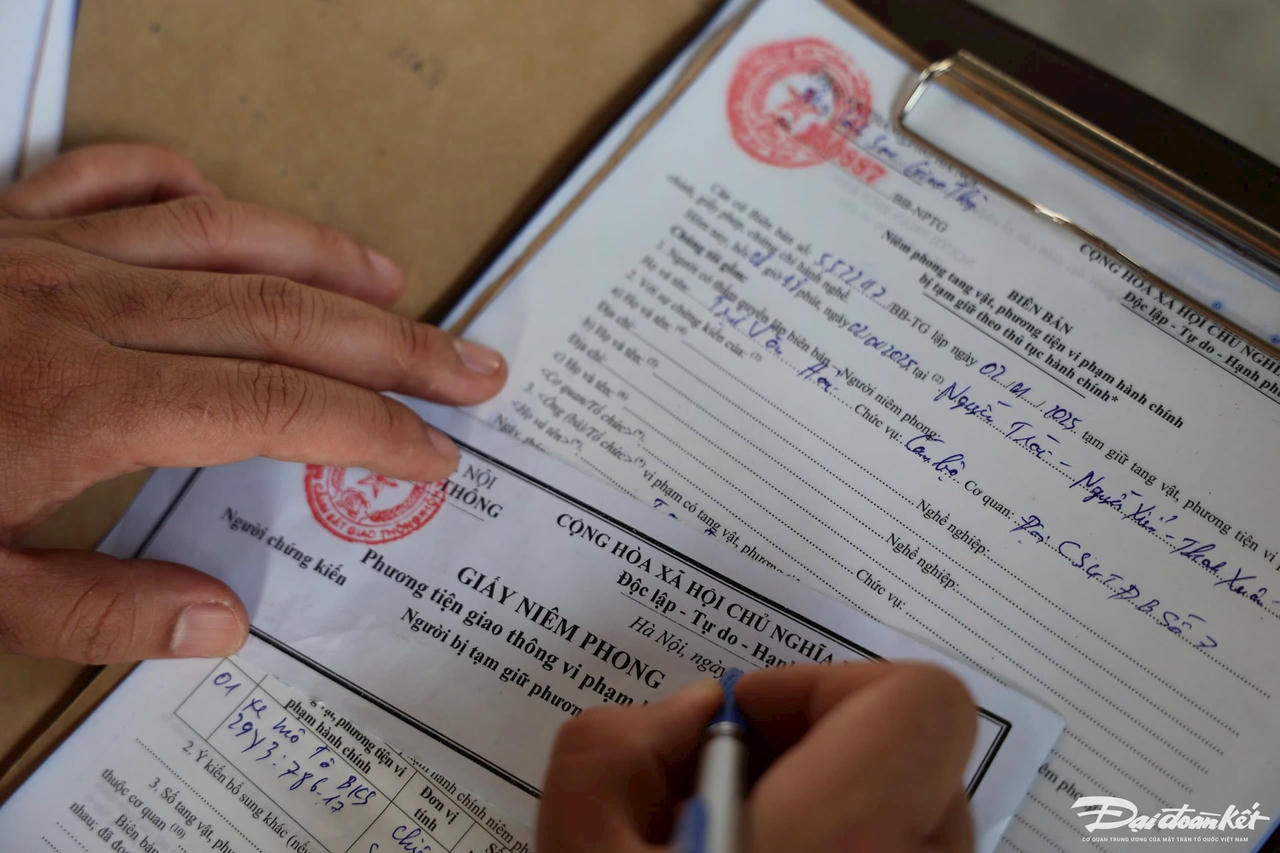 CỘNG HÒA XÃ HỘI CHỦ NGHĨ
Độc lập - Tự do - Hạnh ph
BB-NPTG
BIÊN BẢN
Niêm phong tang vật, phương tiện vi phạm hành chính
bị tạm giữ theo thủ tục hành chính*
Căn cứ Biên bản số: 552247/BB-TG lập ngày 02/01/2025 tạm giữ tang vật, phương tiện vi
chính, giấy phép, chứng chỉ hành nghề.
Hôm nay, hồi giờ phút, ngày 02/01/2025 tại (2) Nguyễn Trãi - Nguyễn Xiển - Thanh Xuân -
Chúng tôi gồm:
1. Người có thẩm quyền lập biên bản Người niêm phong
Họ và tên: Chức vụ: Cán bộ. Cơ quan: Đội CSGTĐB Số 7
2. Với sự chứng kiến của: (3)
a) Họ và tên: (4) Nghề nghiệp:
Địa chỉ:
b) Họ và tên: (5) Nghề nghiệp:
Địa chỉ:
c) Họ và tên: (6) Chức vụ:
<Cơ quan/Tổ chức>(*):
3. <Ông (bà)/Tổ chức>(*) vi phạm có tang vật, phươ
<Họ và tên>(*):
iêm pho
NỘI
THÔNG
CỘNG HÒA XÃ HỘI CHỦ NGHĨA
Độc lập - Tự do - Hạnh
Hà Nội, ngày
GIẤY NIÊM PHONG
Phương tiện giao thông vi phạm
Người chứng kiến
Người bị tạm giữ phươn
phạm hành chính
Đơn vị
tính
01
xe mô tô BKS
29Y3-786.17
2. Ý kiến bổ sung khác (nếu
3. Số tang vật, phư
thuộc cơ quan (10)
Biên bả
nhau, đã đọ
Đại đoàn kết
CƠ QUAN TRUNG ƯƠNG CỦA MẶT TRẬN TỔ QUỐC VIỆT NAM